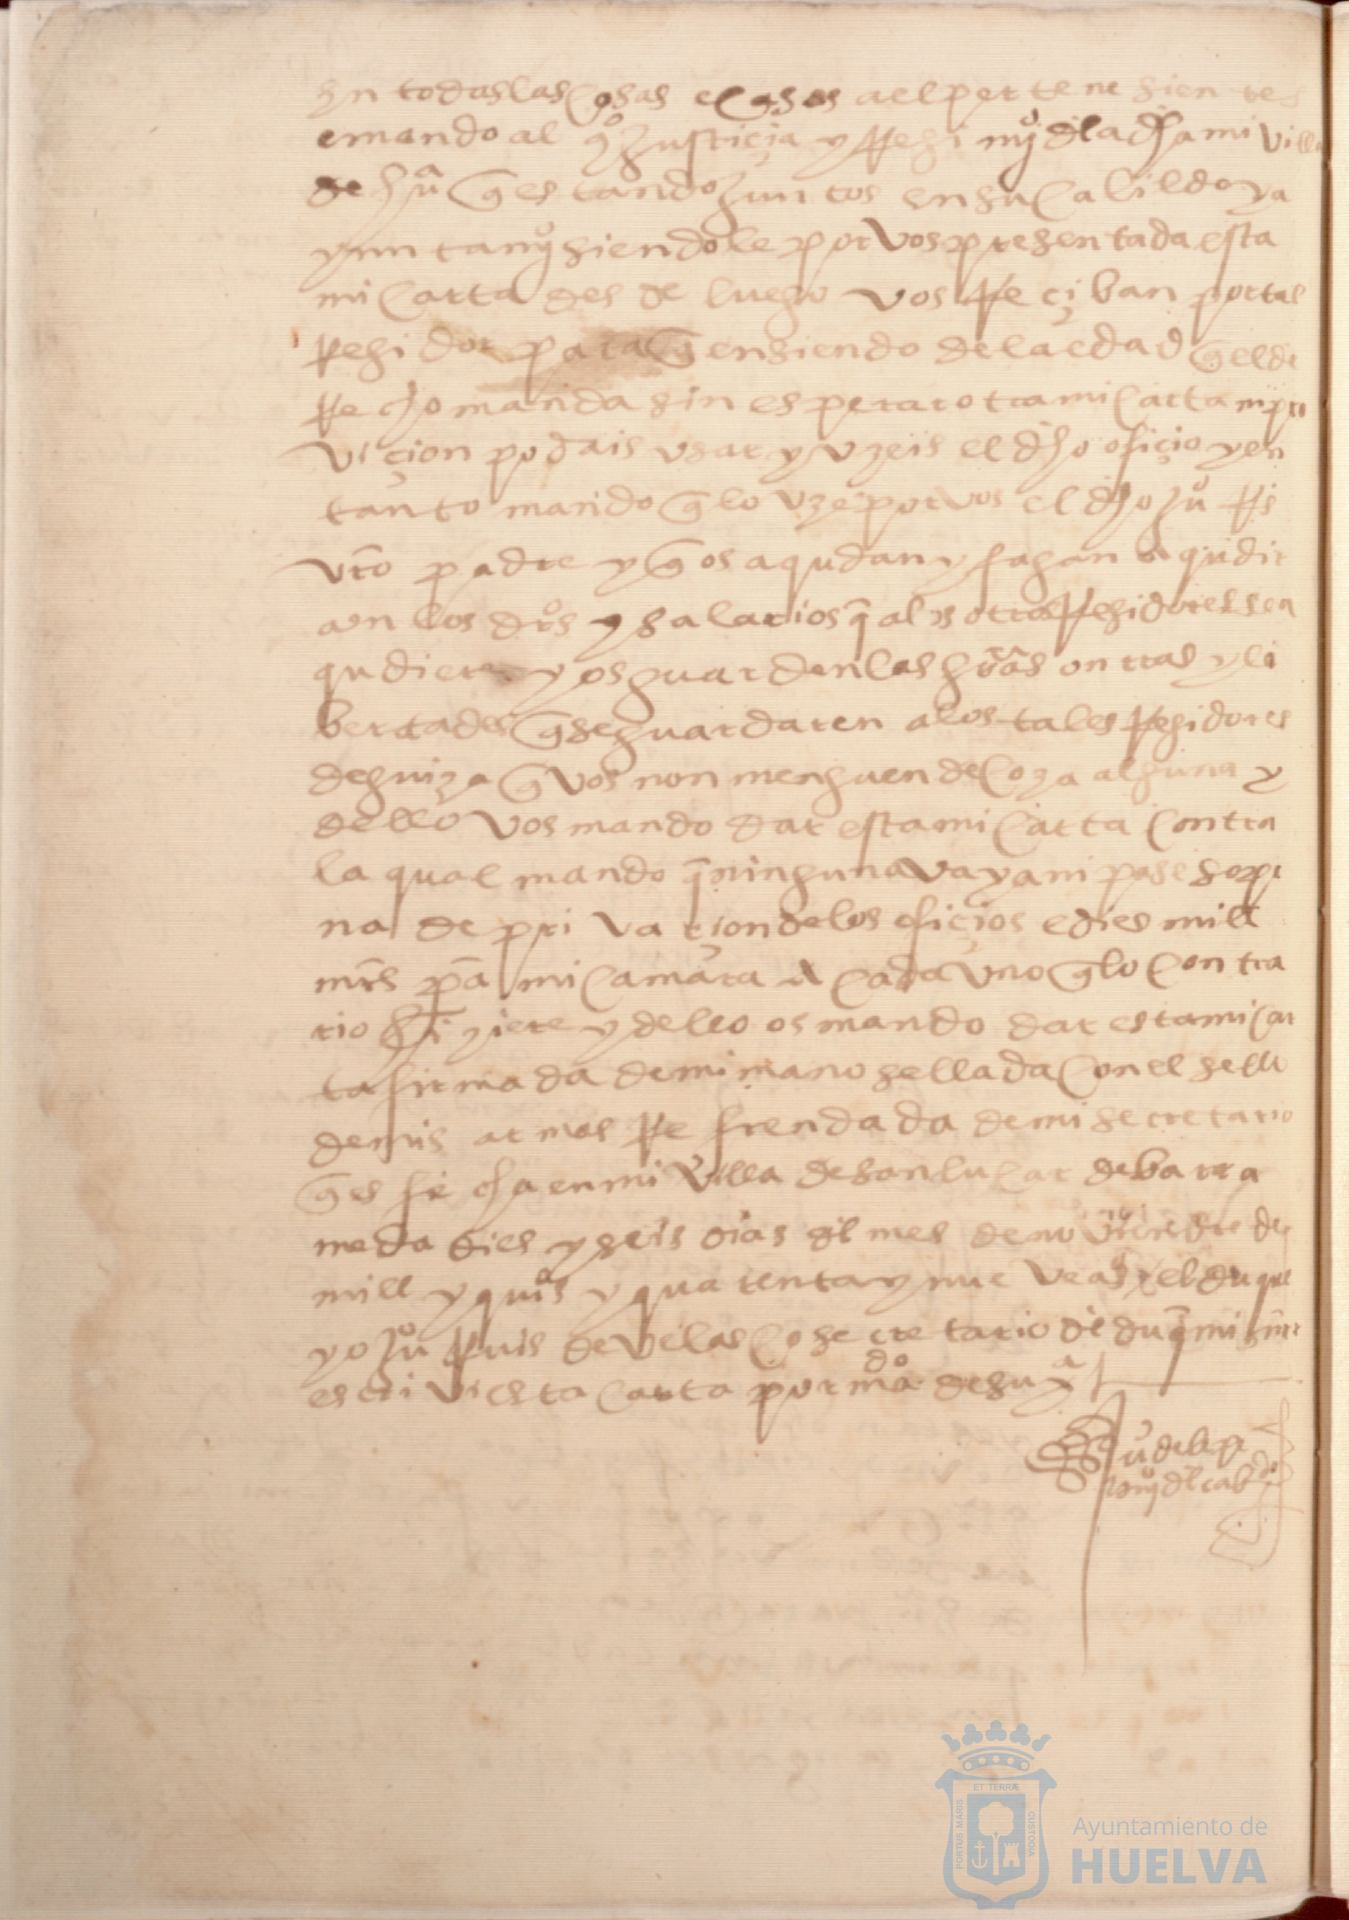 En todas las cosas e casos a el pertenesientes
e mando al qº Justiçia y Regimyº dla dha mi villa
de hua q estando Juntos en su cabildo y a
yuntamyº siendole por vos presentada esta
mi carta desde luego vos Reçiban por tal
Regidor para q en siendo de la edad q el de
Recho manda sin esperar otra mi carta ni pro
viçion podais usar y uzeis el dho ofiçio y en
tanto mando q lo uze por vos el dho juº Rs
vro padre y q os aqudan y fagan aqudir
con los dros y salarios q a los otros Regidores se a
qudiere y os guarden las gras onrras y li
bertades q se guardaren a los tales Regidores
de guiza q vos non menguen de coza alguna y
dello vos mando dar esta mi carta contra
la qual mando q ninguna vaya ni pase so pe
na de privaçion de los ofiçios e dies mill
mrs pa mi camara A cada uno q lo contra
rio hiziere y dello os mando dar esta mi car
ta firmada de mi mano sellada con el sello
de mis armas Refrendada de mi secretario
q es fecha en mi villa de sanlucar de barra
meda dies y seis dias dl mes de novienbre de
mill y quis y quarenta y nueve as el duque
yo juº Ruis de velasco secretario dl duq mi sr
escrivi esta carta por mdº de su sª
juº de la
del cabdº
ET TERRÆ
PORTUS MARIS
CUSTODIA
Ayuntamiento de
HUELVA